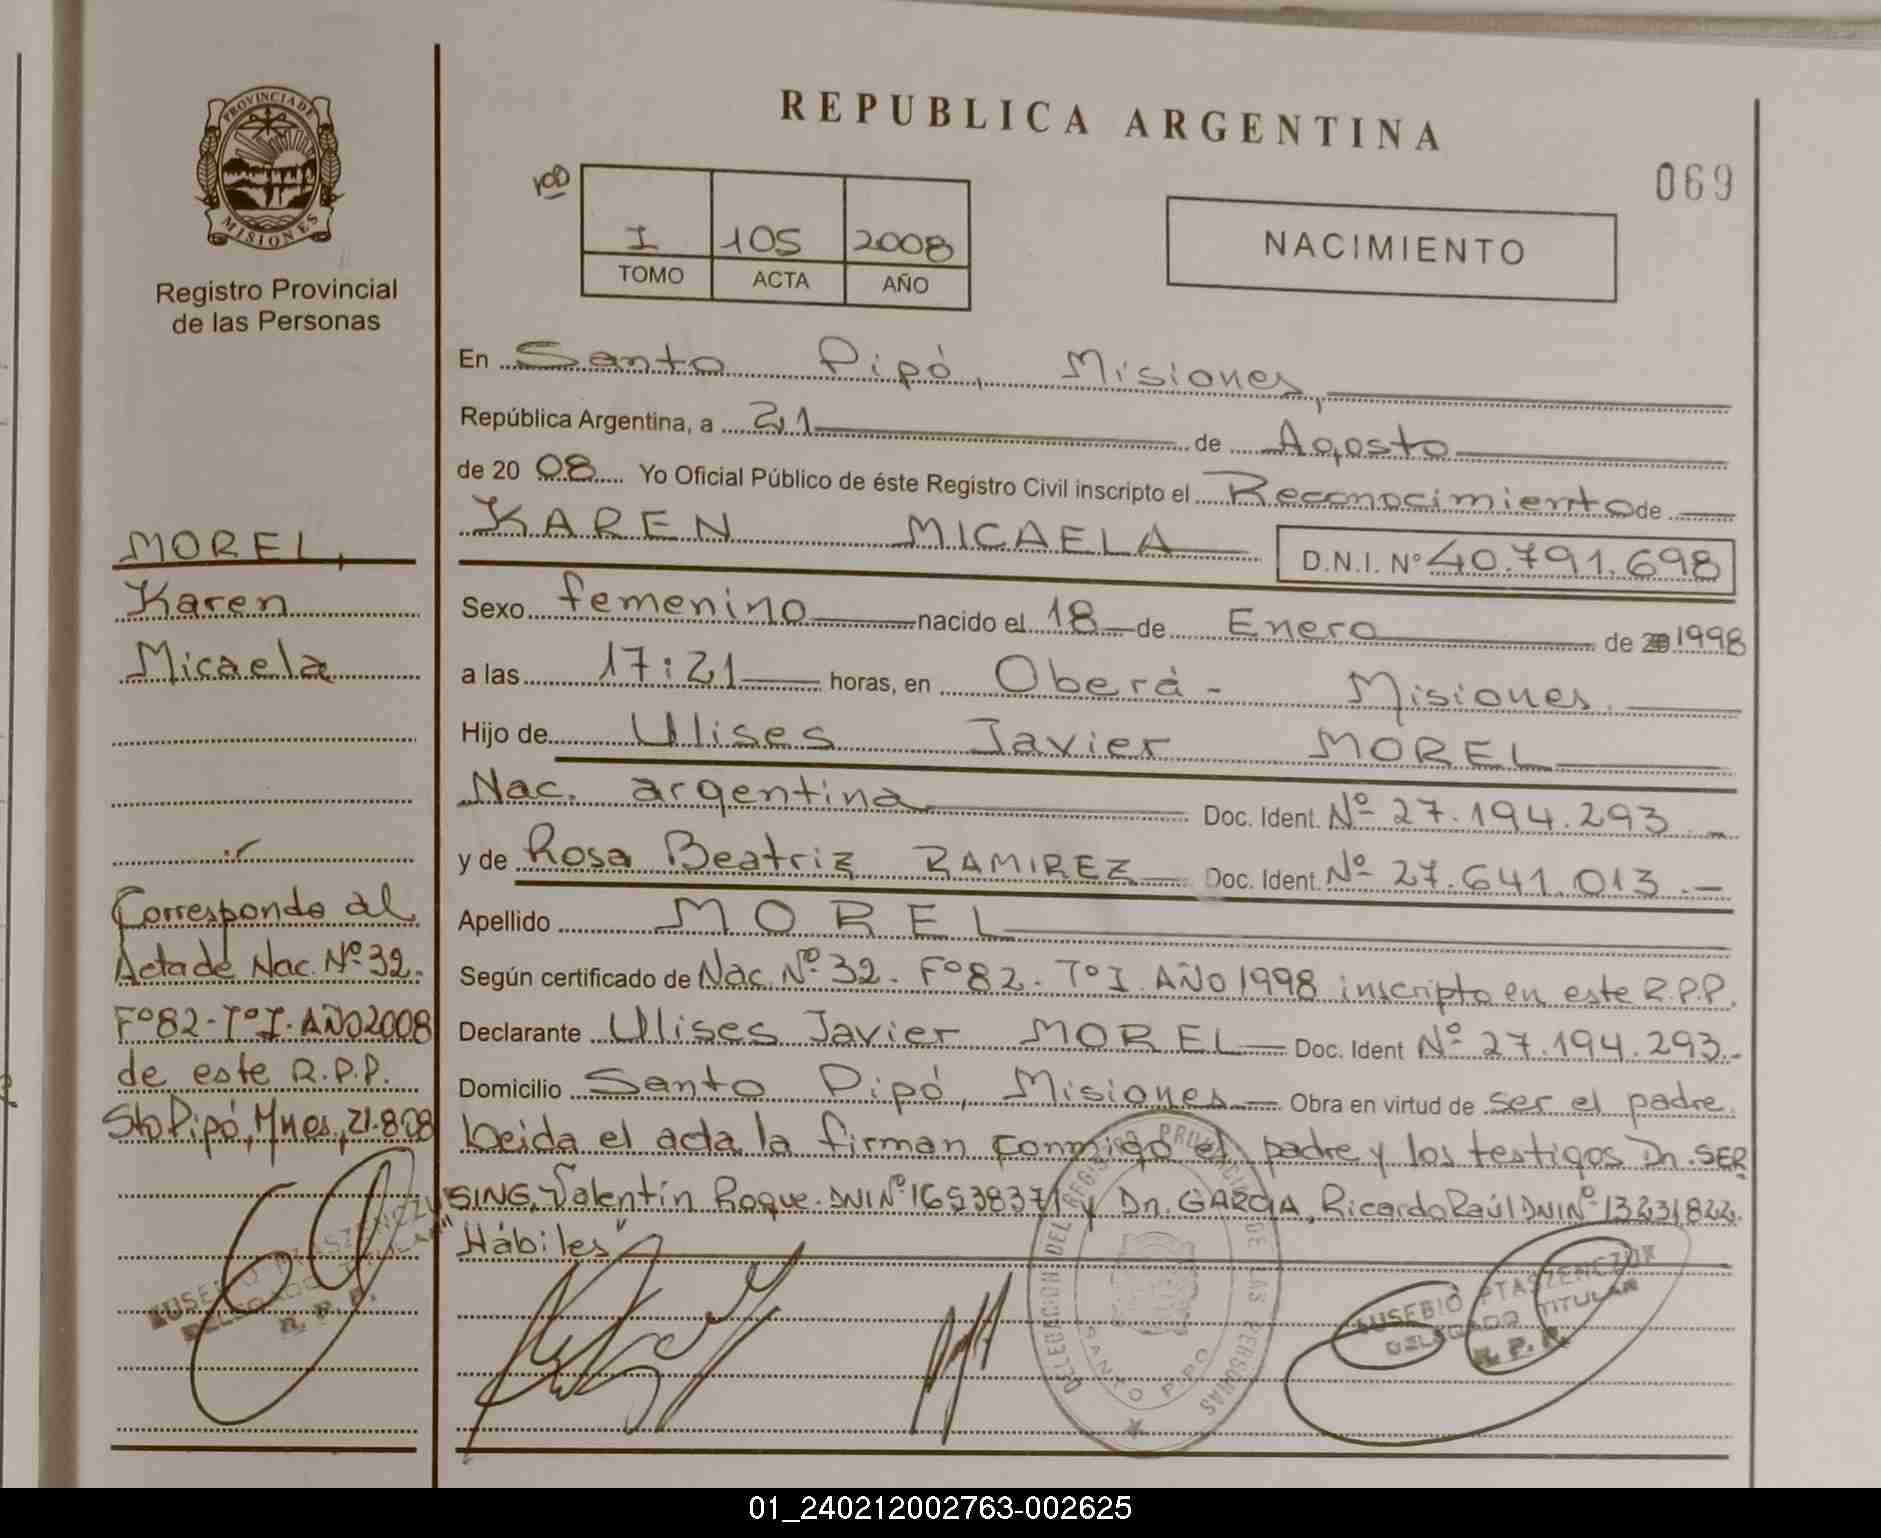 PROVINCIA DE
MISIONES
Registro Provincial
de las Personas
MOREL,
Karen
Micaela
Corresponde al
Acta de Nac. Nº 32.
Fº 82 - Tº I. AÑO 2008
de este R.P.P.
Sto Pipó, Mnes, 21-8-08
EUSEBIO PTASZENCZUK
DELEGADO TITULAR
R. P. P.
REPUBLICA ARGENTINA
069
I 105 2008
TOMO ACTA AÑO
NACIMIENTO
En Santo Pipó, Misiones,
República Argentina, a 21 de Agosto
de 20 08 Yo Oficial Público de éste Registro Civil inscripto el Reconocimiento de
KAREN MICAELA D.N.I. Nº 40.791.698
Sexo femenino nacido el 18 de Enero de 1998
a las 17:21 horas, en Oberá - Misiones.
Hijo de Ulises Javier MOREL
Nac. argentina Doc. Ident. Nº 27.194.293
y de Rosa Beatriz RAMIREZ Doc. Ident. Nº 27.641.013.-
Apellido MOREL
Según certificado de Nac. Nº 32. Fº 82. Tº I. AÑO 1998 inscripto en este R.P.P.
Declarante Ulises Javier MOREL Doc. Ident Nº 27.194.293.-
Domicilio Santo Pipó, Misiones Obra en virtud de ser el padre.
Leida el acta la firman conmigo el padre y los testigos Dn. SER
SING, Valentín Roque. DNI Nº 16538371 y Dn. GARCIA, Ricardo Raúl DNI Nº 13231822.
"Hábiles"
DELEGACION DEL REGISTRO PROVINCIAL DE LAS PERSONAS
SANTO PIPO
EUSEBIO PTASZENCZUK
DELEGADO TITULAR
R. P. P.
01_240212002763-002625